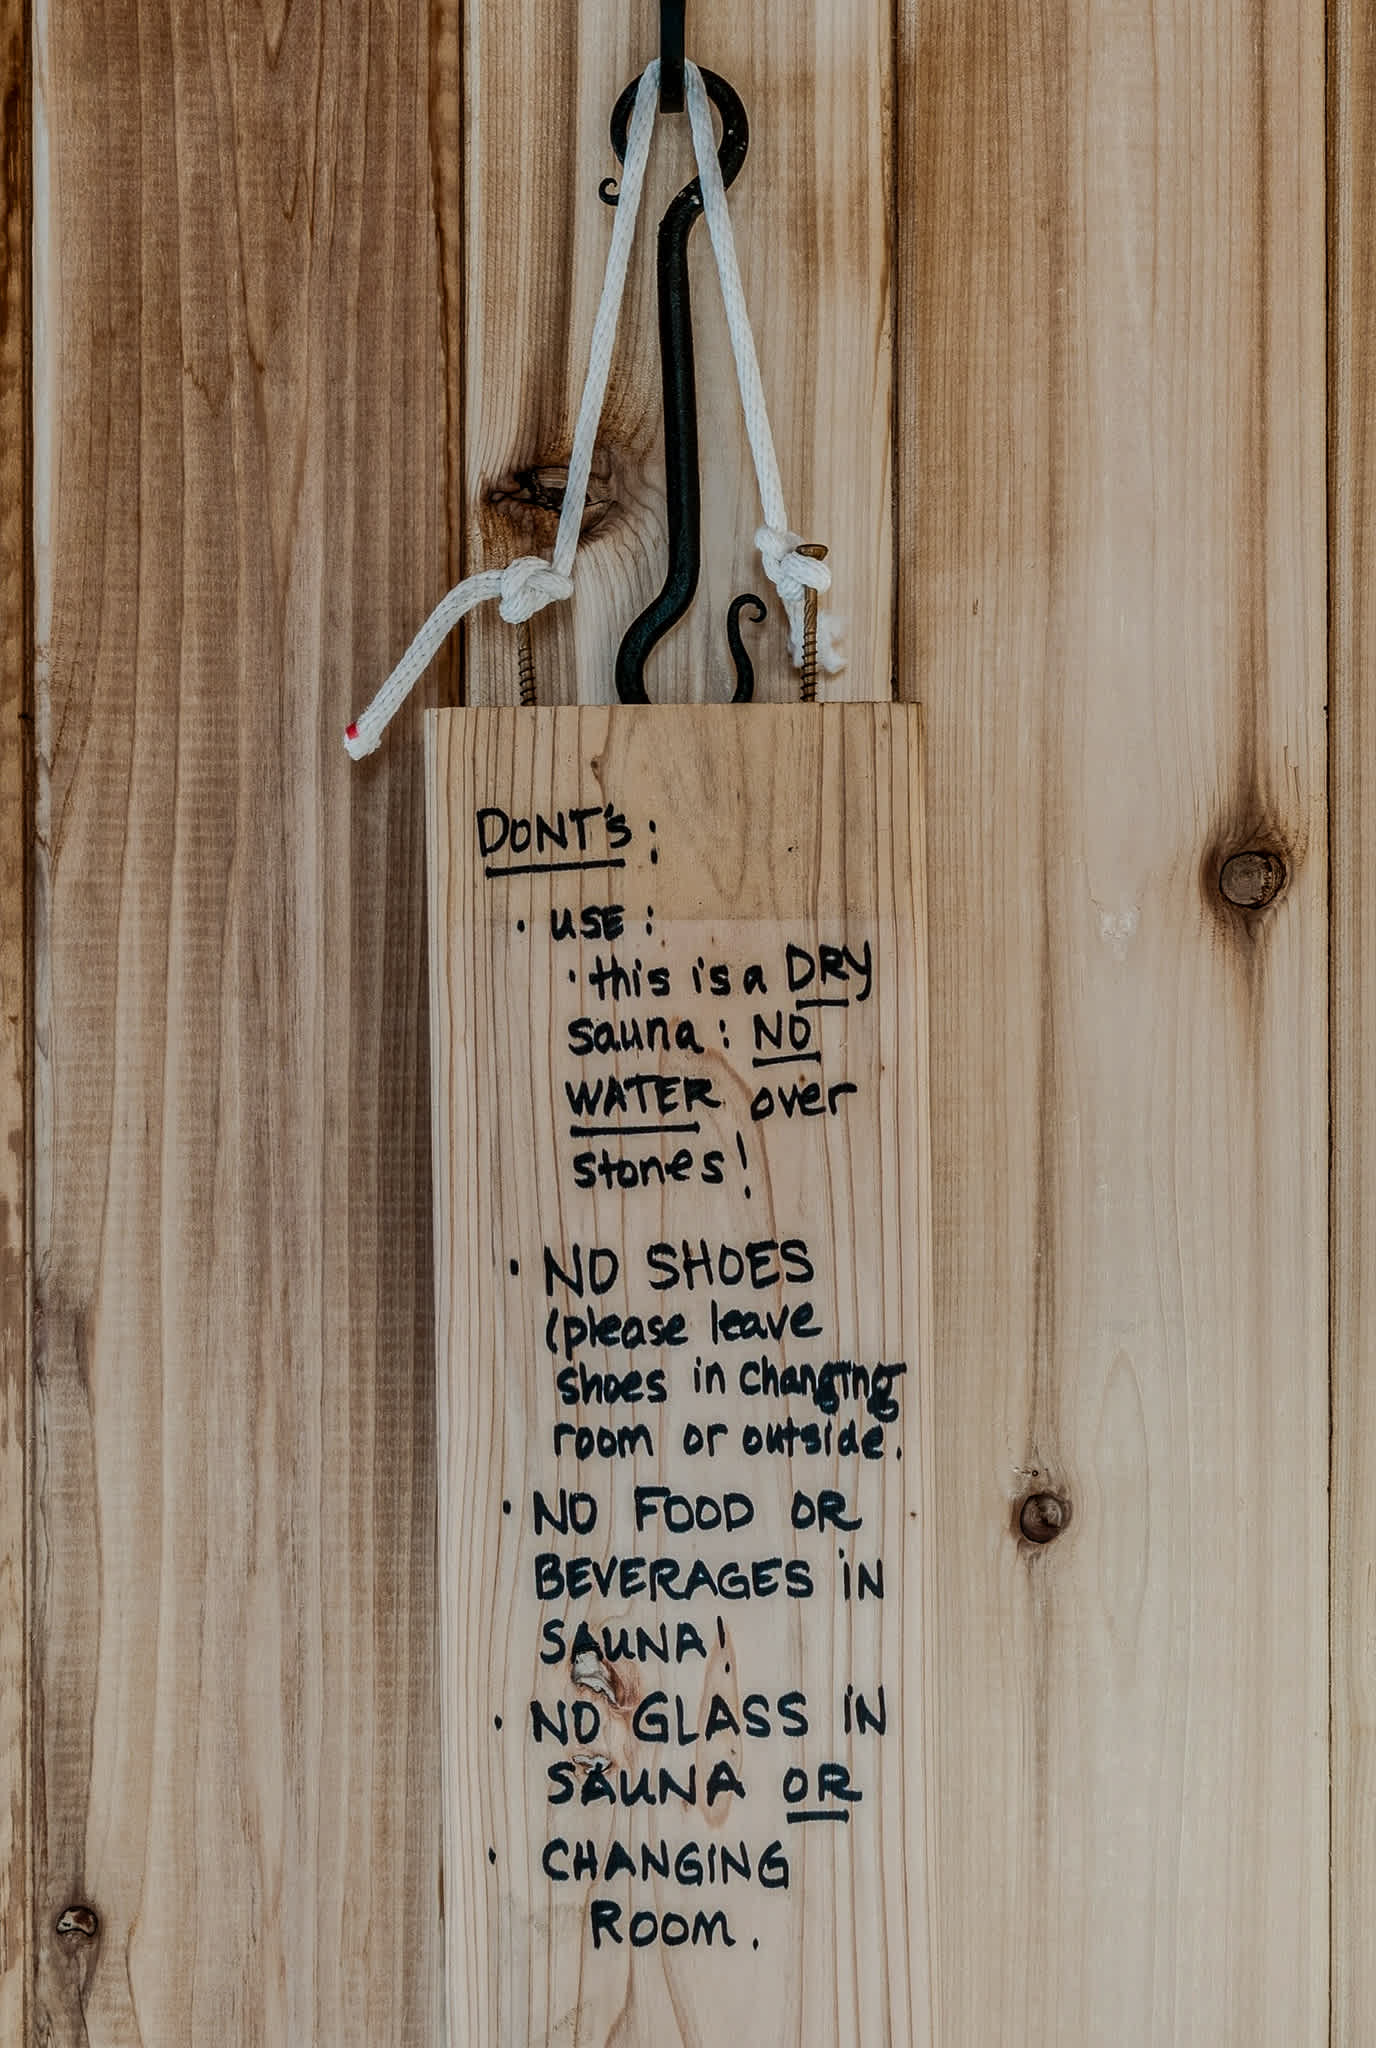 DONT's:
· USE:
· this is a DRY
sauna: NO
WATER over
stones!
· NO SHOES
(please leave
shoes in changing
room or outside.
· NO FOOD OR
BEVERAGES iN
SAUNA!
· NO GLASS iN
SAUNA OR
· CHANGING
ROOM.